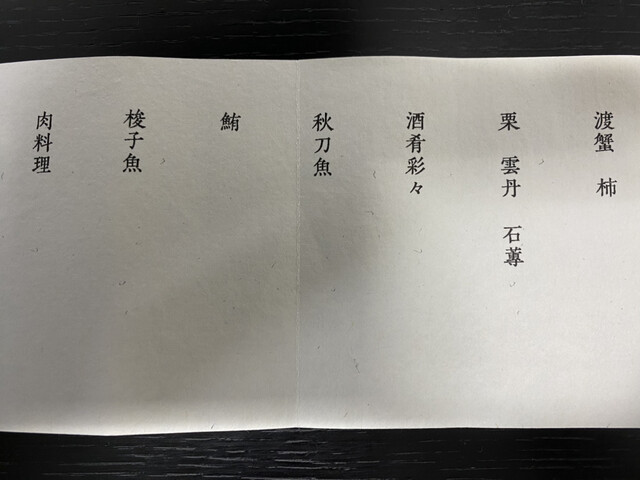 渡蟹　柿
栗　雲丹　石蓴
酒肴彩々
秋刀魚
鮪
梭子魚
肉料理